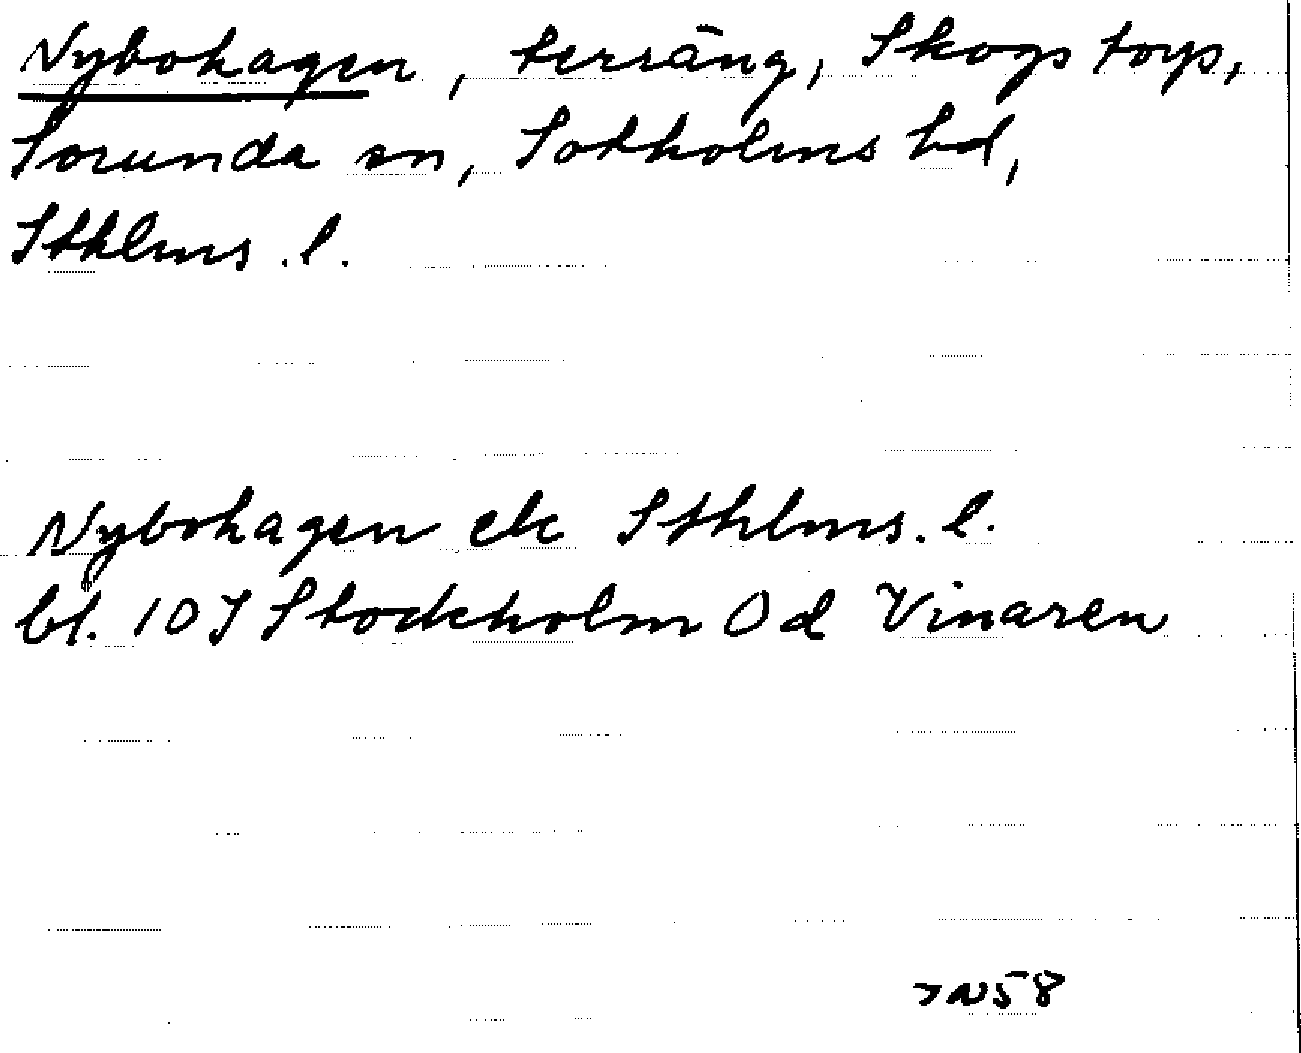 Nybohagen, terräng, Skogstorp,
Sorunda sn, Sotholms hd,
Sthlms. l.
Nybohagen ek Sthlms. l.
bl. 10I Stockholm Od Vinaren